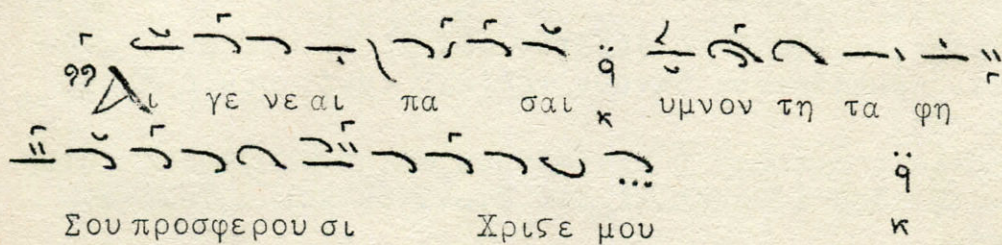 Αι γε νε αι πα σαι υμνον τη τα φη
Σου προσφερου σι Χριςε μου